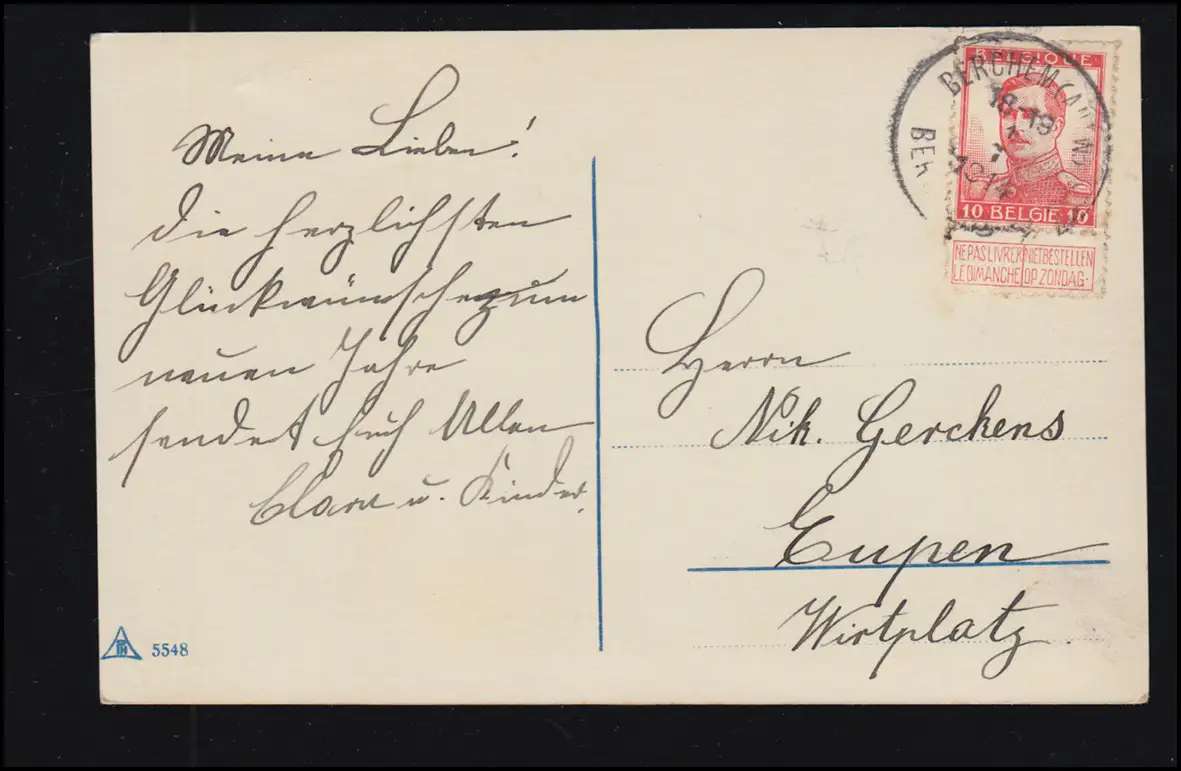 Meine Lieben!
die herzlichsten
Glückwünsche zum
neuen Jahre
sendet Euch Allen
Clara u. Kinder.
BELGIQUE
BERCHEM (ANTW
18-19
1914
BER
10 BELGIE 10
NE PAS LIVRER NIET BESTELLEN
LE DIMANCHE OP ZONDAG.
Herrn
Nik. Gerckens
Eupen
Wirtplatz.
5548